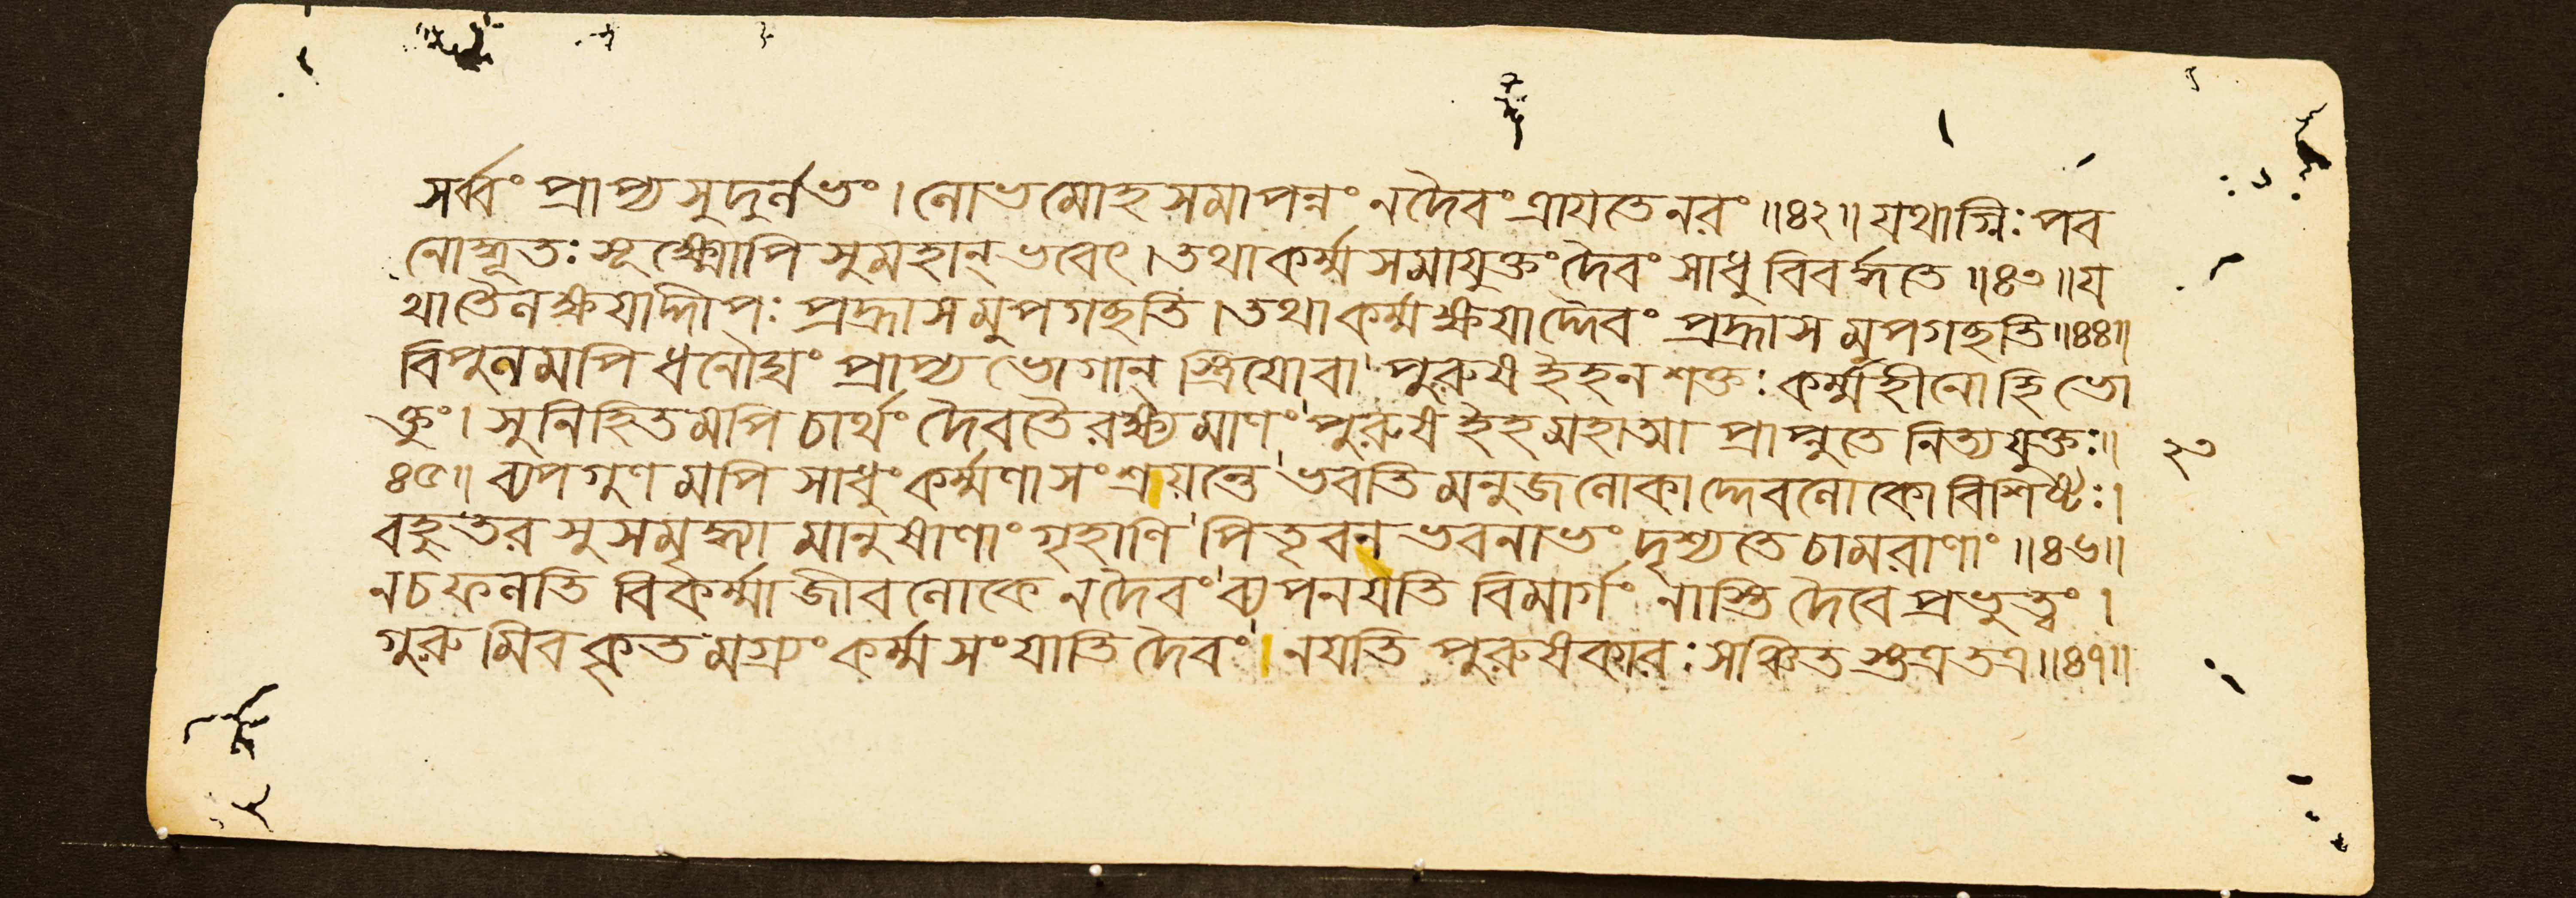 সর্ব্বং প্রাপ্য সুদুর্লভং । লোভমোহসমাপন্নং ন দৈবং ত্রায়তে নরং ॥৪২॥ যথাগ্নিঃ পব
নোদ্ধূতঃ সূক্ষ্মোপি সুমহান্ ভবেৎ । তথা কর্ম্মসমাযুক্তং দৈবং সাধু বিবর্দ্ধতে ॥৪৩॥ য
থা তৈলক্ষয়াদ্দীপঃ প্রহ্রাসমুপগচ্ছতি । তথা কর্ম্মক্ষয়াদ্দৈবং প্রহ্রাসমুপগচ্ছতি ॥৪৪॥
বিপুলমপি ধনৌঘং প্রাপ্য ভোগান্ স্ত্রিয়ো বা' পুরুষ ইহ ন শক্তঃ কর্ম্মহীনো হি ভো
ক্তুং । সুনিহিতমপি চার্থং দৈবতৈ রক্ষ্যমাণং' পুরুষ ইহ মহাত্মা প্রাপ্নুতে নিত্যযুক্তঃ ॥
৪৫॥ ব্যপগুণমপি সাধুং কর্ম্মণা সংশ্রয়ন্তে' ভবতি মনুজলোকাদ্দেবলোকো বিশিষ্টঃ ।
বহুতরসুসমৃদ্ধ্যা মানুষাণাং গৃহাণি' পিতৃবনভবনাভং দৃশ্যতে চামরাণাং ॥৪৬॥
ন চ ফলতি বিকর্ম্মা জীবলোকে ন দৈবং' ব্যপনয়তি বিমার্গং নাস্তি দৈবে প্রভুত্বং ।
গুরুমিব কৃতমগ্র্যং কর্ম্ম সংযাতি দৈবং' । নয়তি পুরুষকারঃ সঞ্চিতস্তত্র তত্র ॥৪৭॥
২৩